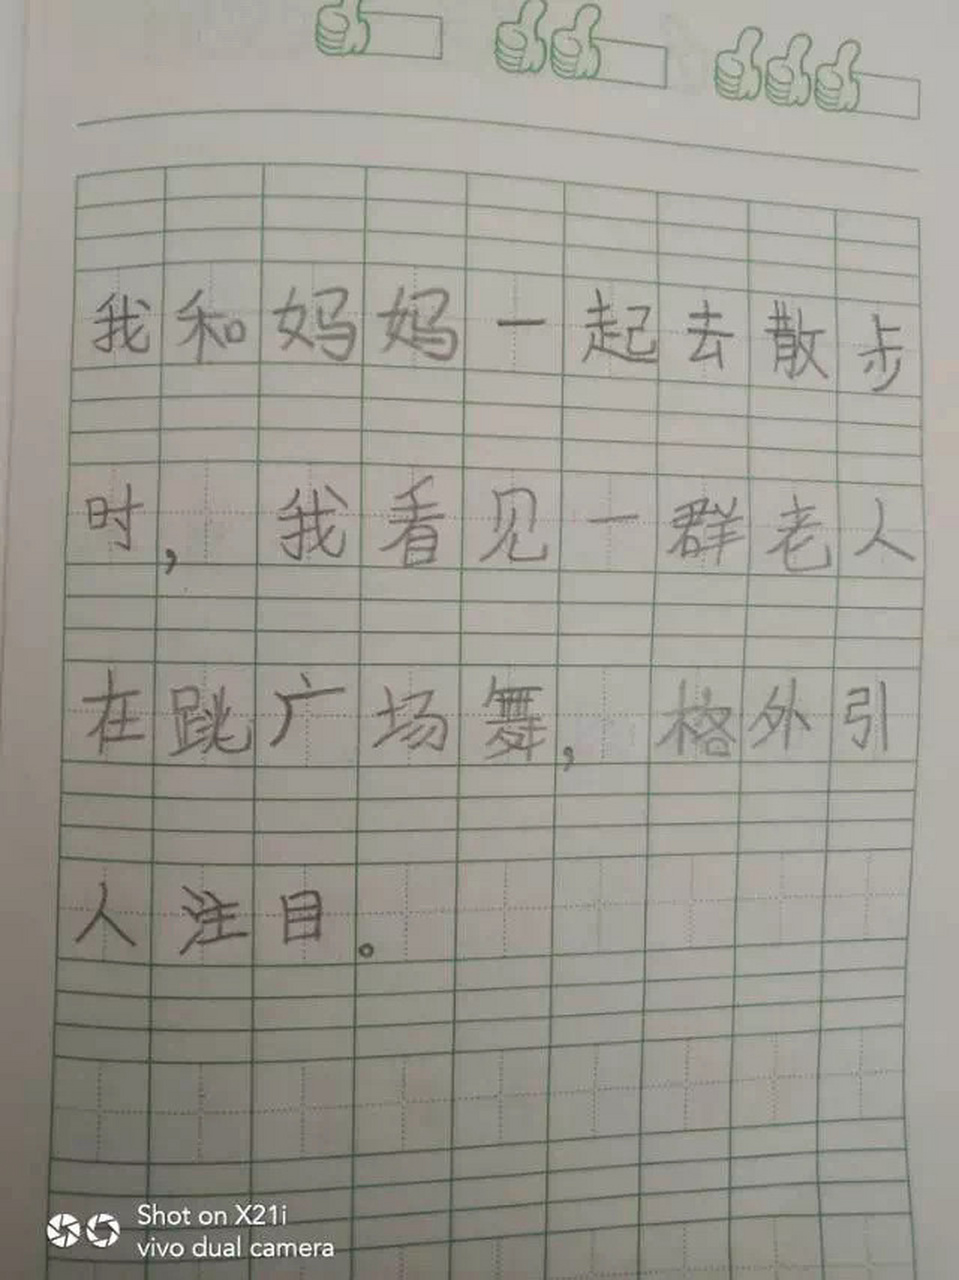 我和妈妈一起去散步
时，我看见一群老人
在跳广场舞，格外引
人注目。
Shot on X21i
vivo dual camera